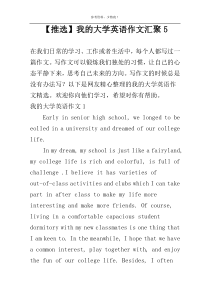 【推选】我的大学英语作文汇聚 5
在我们日常的学习、工作或者生活中，每个人都写过一
篇作文，写作文可以锻炼我们独处的习惯，让自己的心
态平静下来，思考自己未来的方向。写作文的时候总是
没有办法写？以下是网友精心整理的我的大学英语作
文精选，欢迎你向他们学习，希望对你有帮助。
我的大学英语作文 1
Early in senior high school, we longed to be
eolled in a university and dreamed of our college
life.
In my dream, my school is just like a fairyland,
my college life is rich and colorful, is full of
challenge .I believe it has varieties of
out-of-class activities and clubs which I can take
part in after class to make my life more
interesting and make more friends. Of course,
living in a comfortable capacious student
dormitory with my new classmates is one thing that
I am keen to. In the meanwhile, I hope that we have
a common interest, play together with, and enjoy
the fun of our college life. Besides, I often